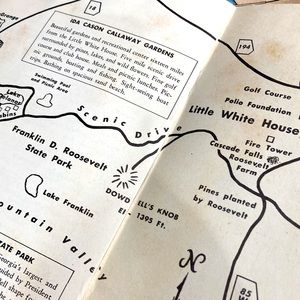 18
Orange
IDA CASON CALLAWAY GARDENS
Beautiful gardens and recreational center sixteen miles
from the Little White House. Five mile scenic drive
inside of pines, lakes, and wild flowers. Fine golf
course and club house. Mesh and picnic lunches. Pic-
nic grounds, boating and fishing. Sight-seeing boat
trips. Bathing on spacious sand beach.
194
Golf Course
Polio Foundation
Little White House
Swimming Pool
and Picnic Area
Lake
Scenic Drive
Fire Tower
Cascade Falls
Roosevelt
Farm
Franklin D. Roosevelt
State Park
DOWDELL'S KNOB
El 1395 Ft.
Pines planted
by Roosevelt
Lake Franklin
Mountain Valley
N
85
W
STATE PARK
Georgia's largest and
by President